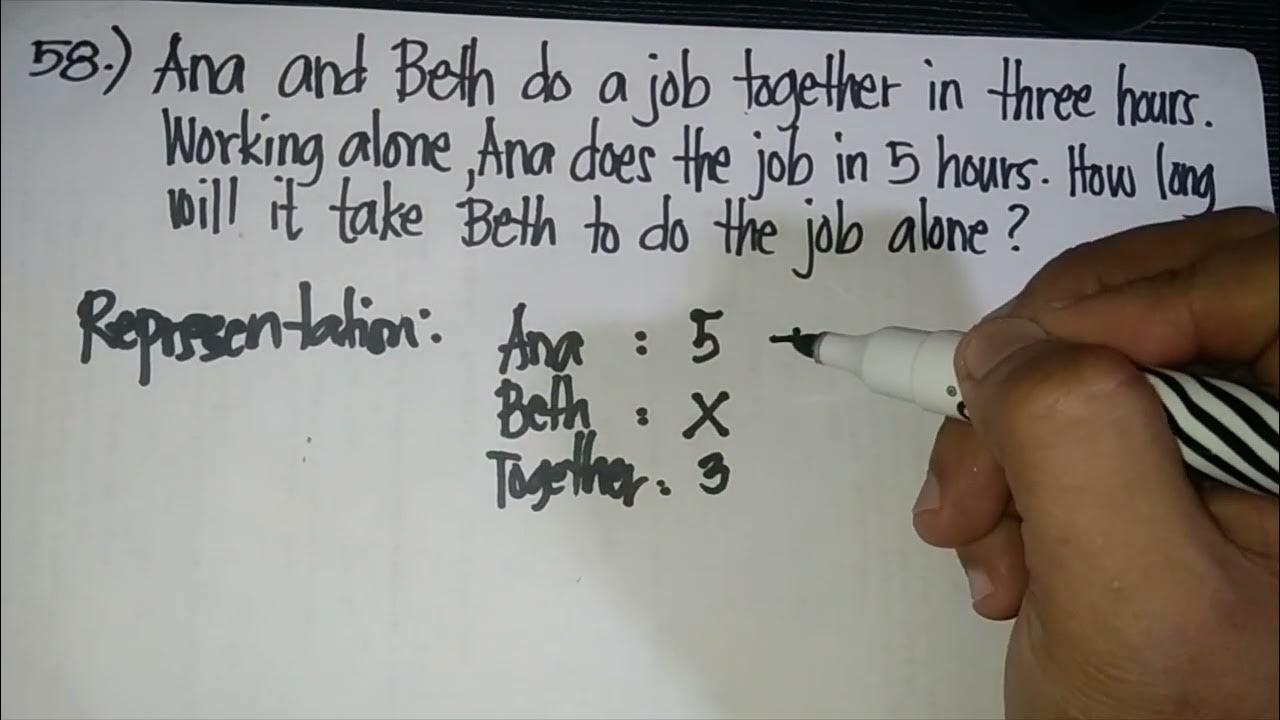 58.) Ana and Beth do a job together in three hours.
Working alone, Ana does the job in 5 hours. How long
will it take Beth to do the job alone?
Representation: Ana : 5
Beth : X
Together : 3